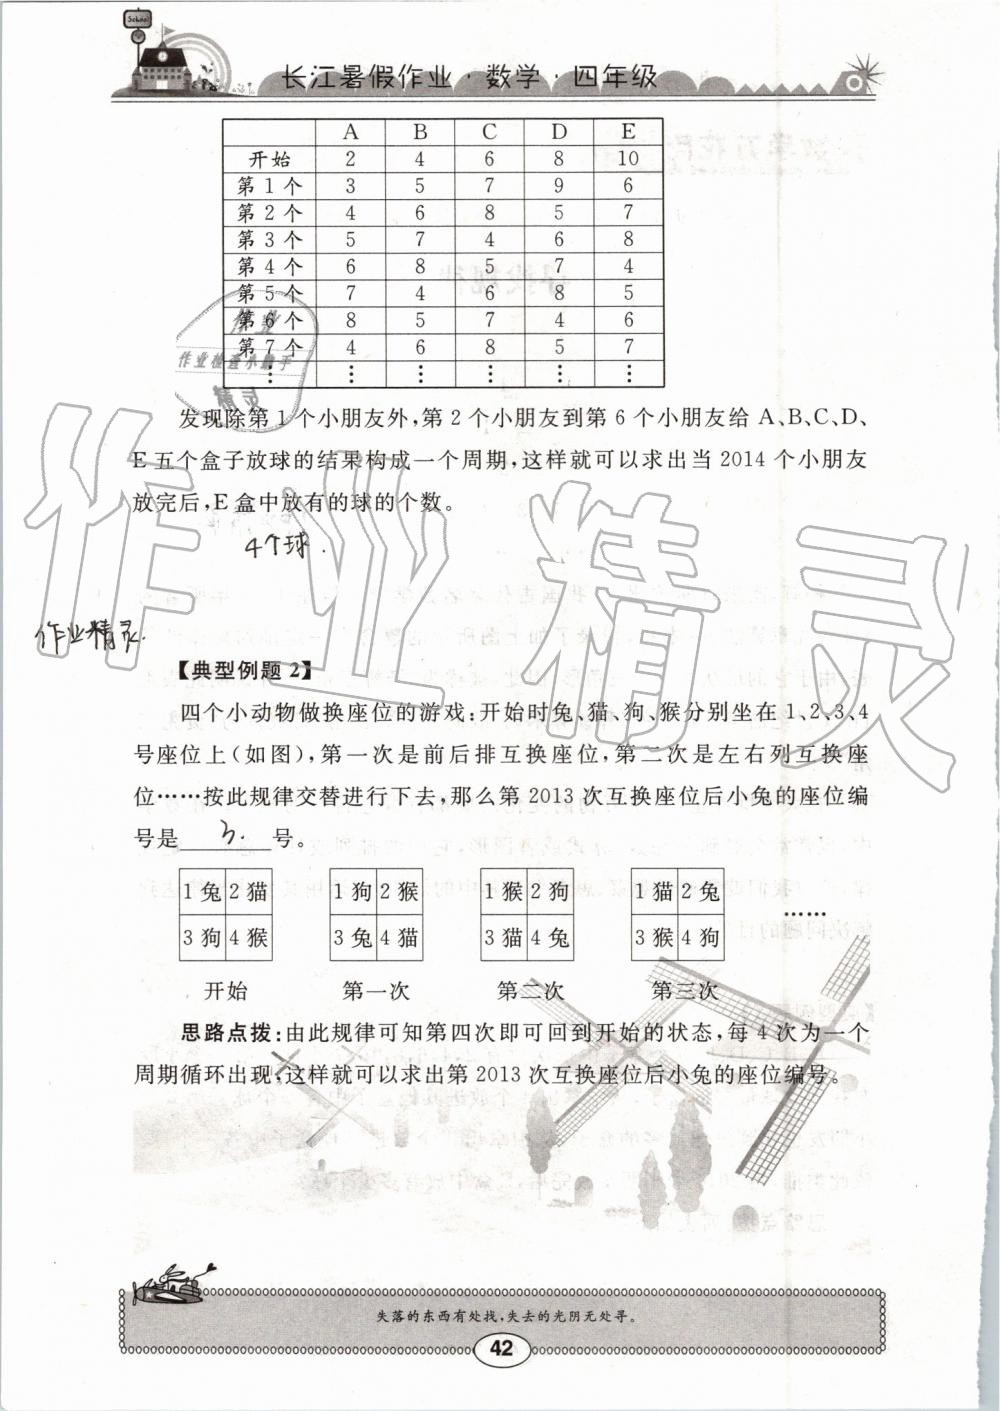 School
长江暑假作业·数学·四年级
A B C D E
开始 2 4 6 8 10
第1个 3 5 7 9 6
第2个 4 6 8 5 7
第3个 5 7 4 6 8
第4个 6 8 5 7 4
第5个 7 4 6 8 5
第6个 8 5 7 4 6
第7个 4 6 8 5 7
⋮ ⋮ ⋮ ⋮ ⋮ ⋮
作业
作业检查小助手
精灵
发现除第1个小朋友外,第2个小朋友到第6个小朋友给A、B、C、D、
E五个盒子放球的结果构成一个周期,这样就可以求出当2014个小朋友
放完后,E盒中放有的球的个数。
4个球.
作业精灵
作业精灵.
【典型例题2】
四个小动物做换座位的游戏:开始时兔、猫、狗、猴分别坐在1、2、3、4
号座位上(如图),第一次是前后排互换座位,第二次是左右列互换座
位……按此规律交替进行下去,那么第2013次互换座位后小兔的座位编
号是 3. 号。
1兔 2猫 1狗 2猴 1猴 2狗 1猫 2兔
3狗 4猴 3兔 4猫 3猫 4兔 3猴 4狗 ……
开始 第一次 第二次 第三次
思路点拨:由此规律可知第四次即可回到开始的状态,每4次为一个
周期循环出现,这样就可以求出第2013次互换座位后小兔的座位编号。
失落的东西有处找,失去的光阴无处寻。
42